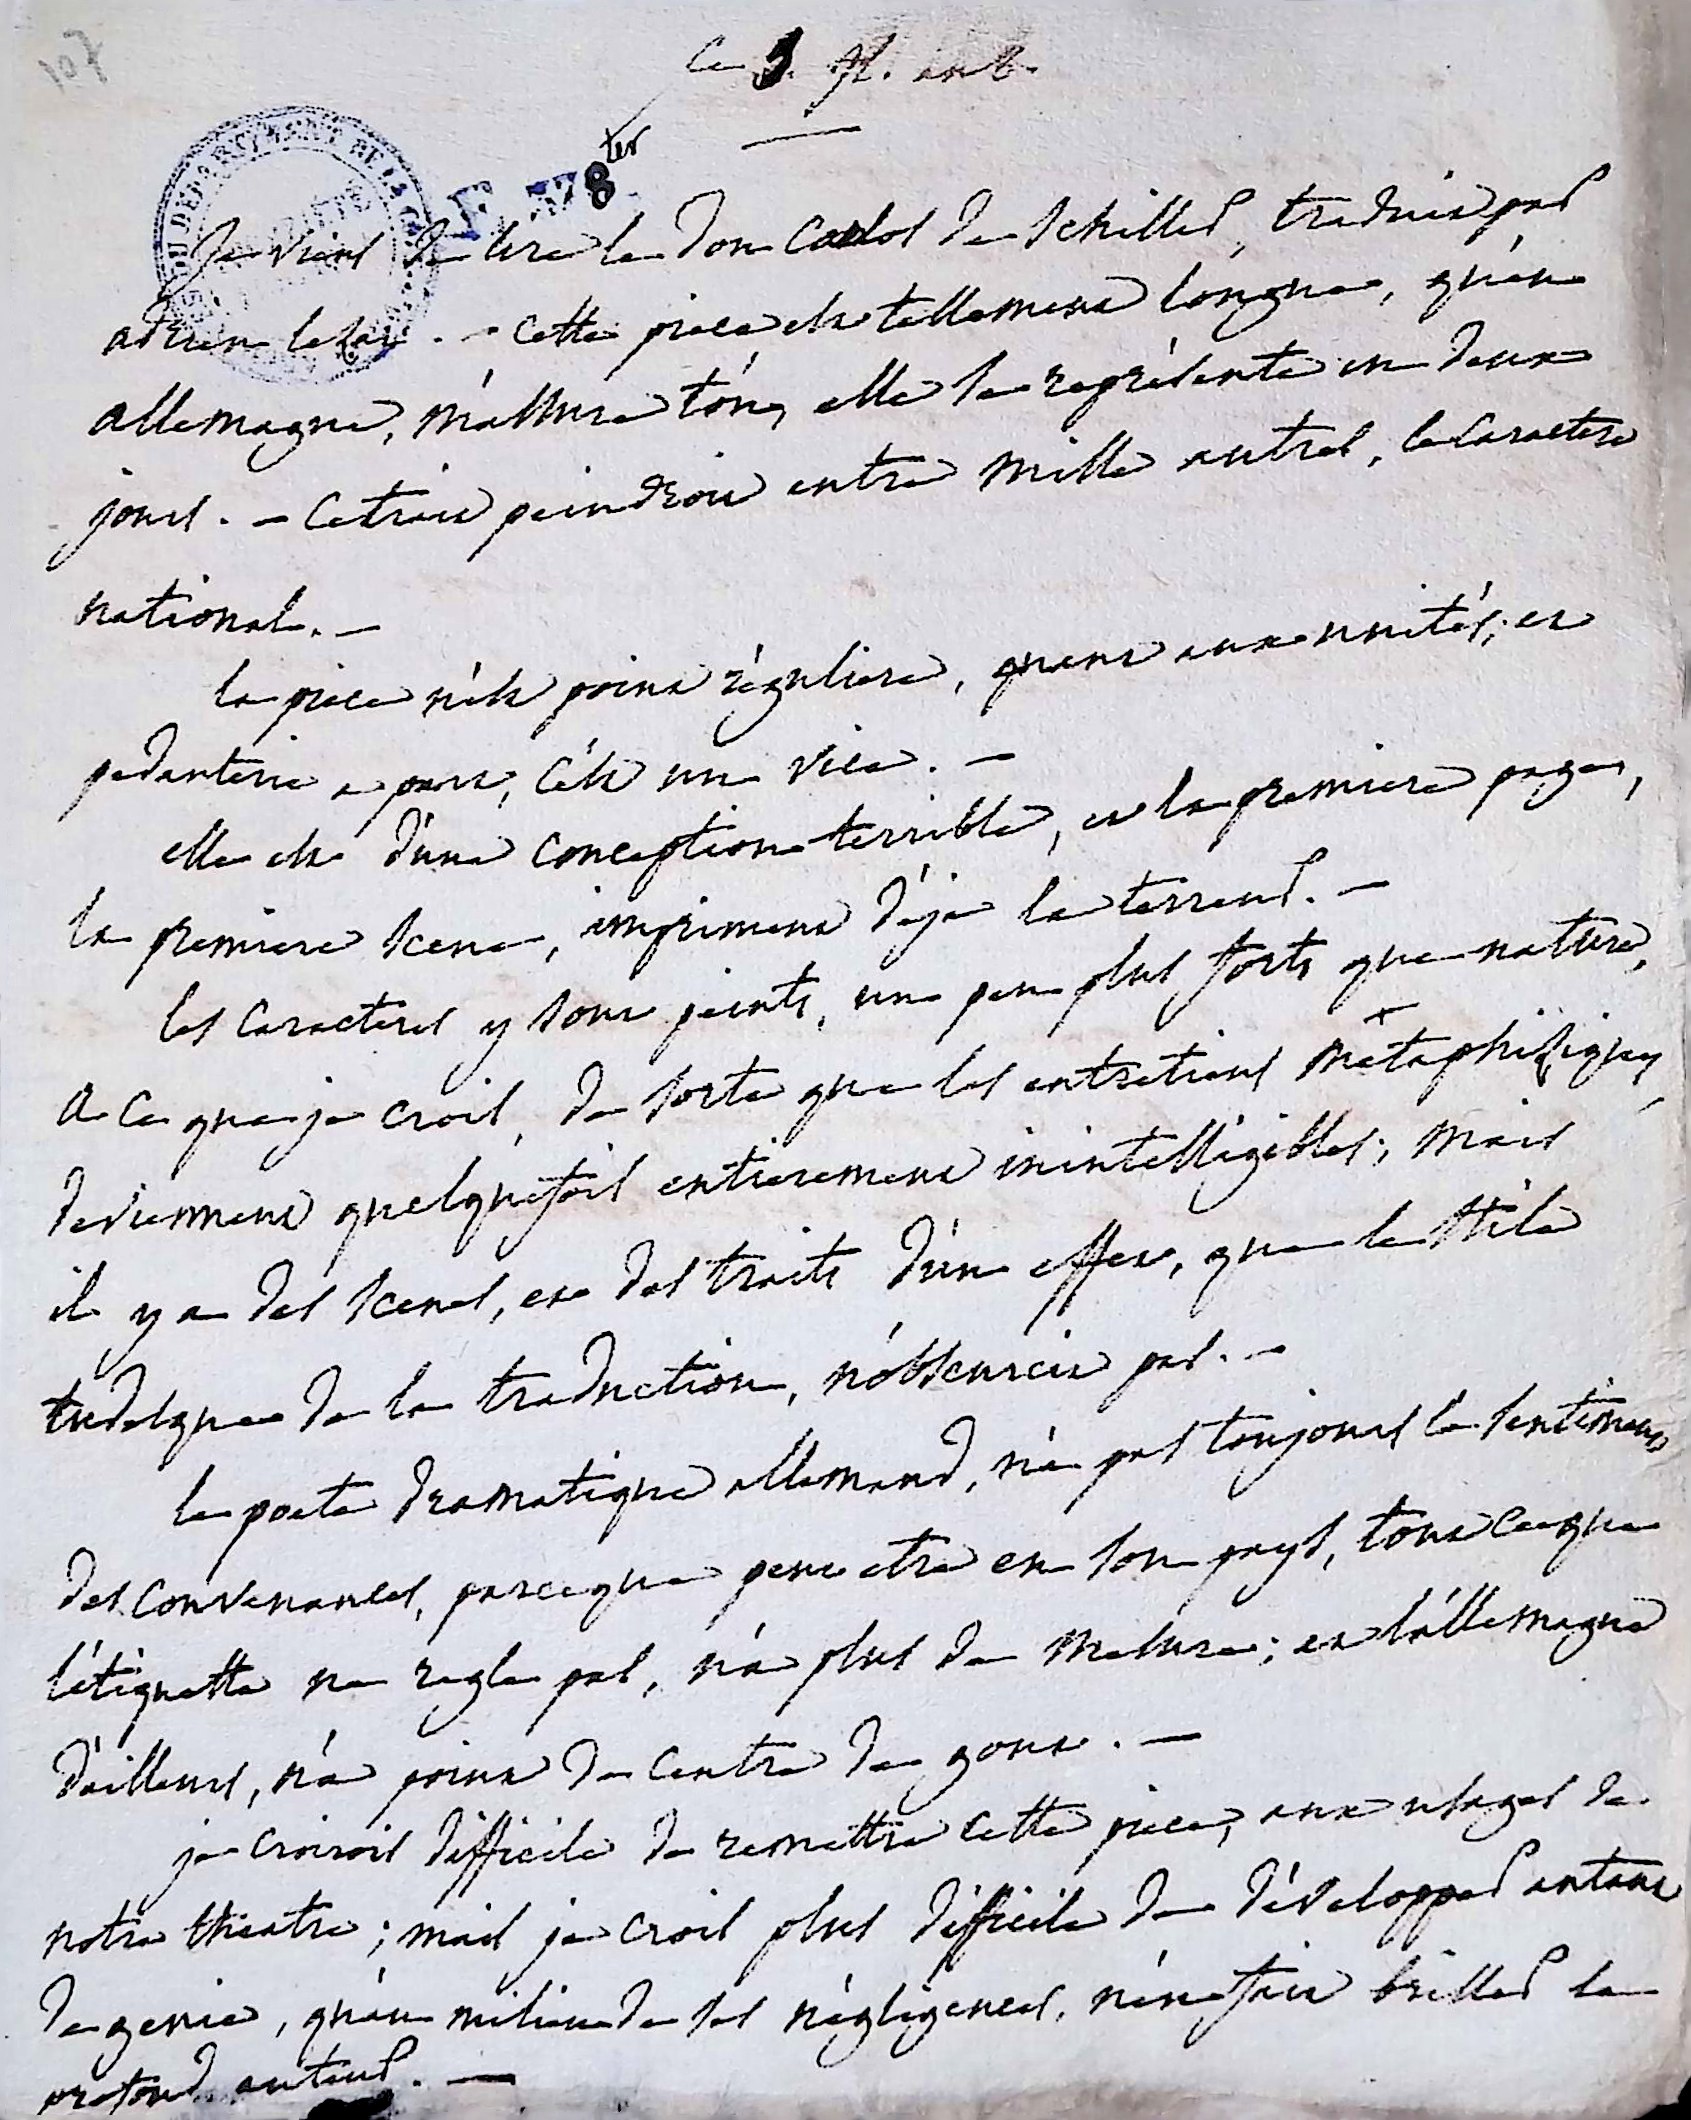 107
Ce 3. fl. an 6.
F 378 ter
DU DEPARTEMENT DE LA
je viens de lire le Don Carlos de Schiller, traduit par
adrien lezai. - cette piece est tellement longue, qu'en
allemagne, m'assure t'on, elle se représente en deux
jours. - Ce trait peindroit entre mille autres, le caractere
national. -
la piece n'est point régulière, quant aux unités; et
pedanterie a part, c'est un vice. -
elle est d'une conception terrible, et la premiere page,
la premiere scene, impriment déja la terreur. -
les caracteres y sont peints, un peu plus forts que nature,
a ce que je crois, de sorte que les entretiens métaphisiques,
deviennent quelquefois entierement inintelligibles; mais
il y a des scenes, et des traits d'un effet, que le stile
tudesque de la traduction, n'obscurcit pas. -
le poete dramatique allemand, n'a pas toujours le sentiment
des convenances, parceque peut etre en son pays, tout ce que
l'étiquette ne regle pas, n'a plus de mesure; et l'allemagne
d'ailleurs, n'a point de centre de gout. -
je croirois difficile de remettre cette piece, aux usages de
notre théatre; mais je crois plus difficile de développer autant
de genie, qu'au milieu de ses négligences, n'en fait briller le
profond auteur. -